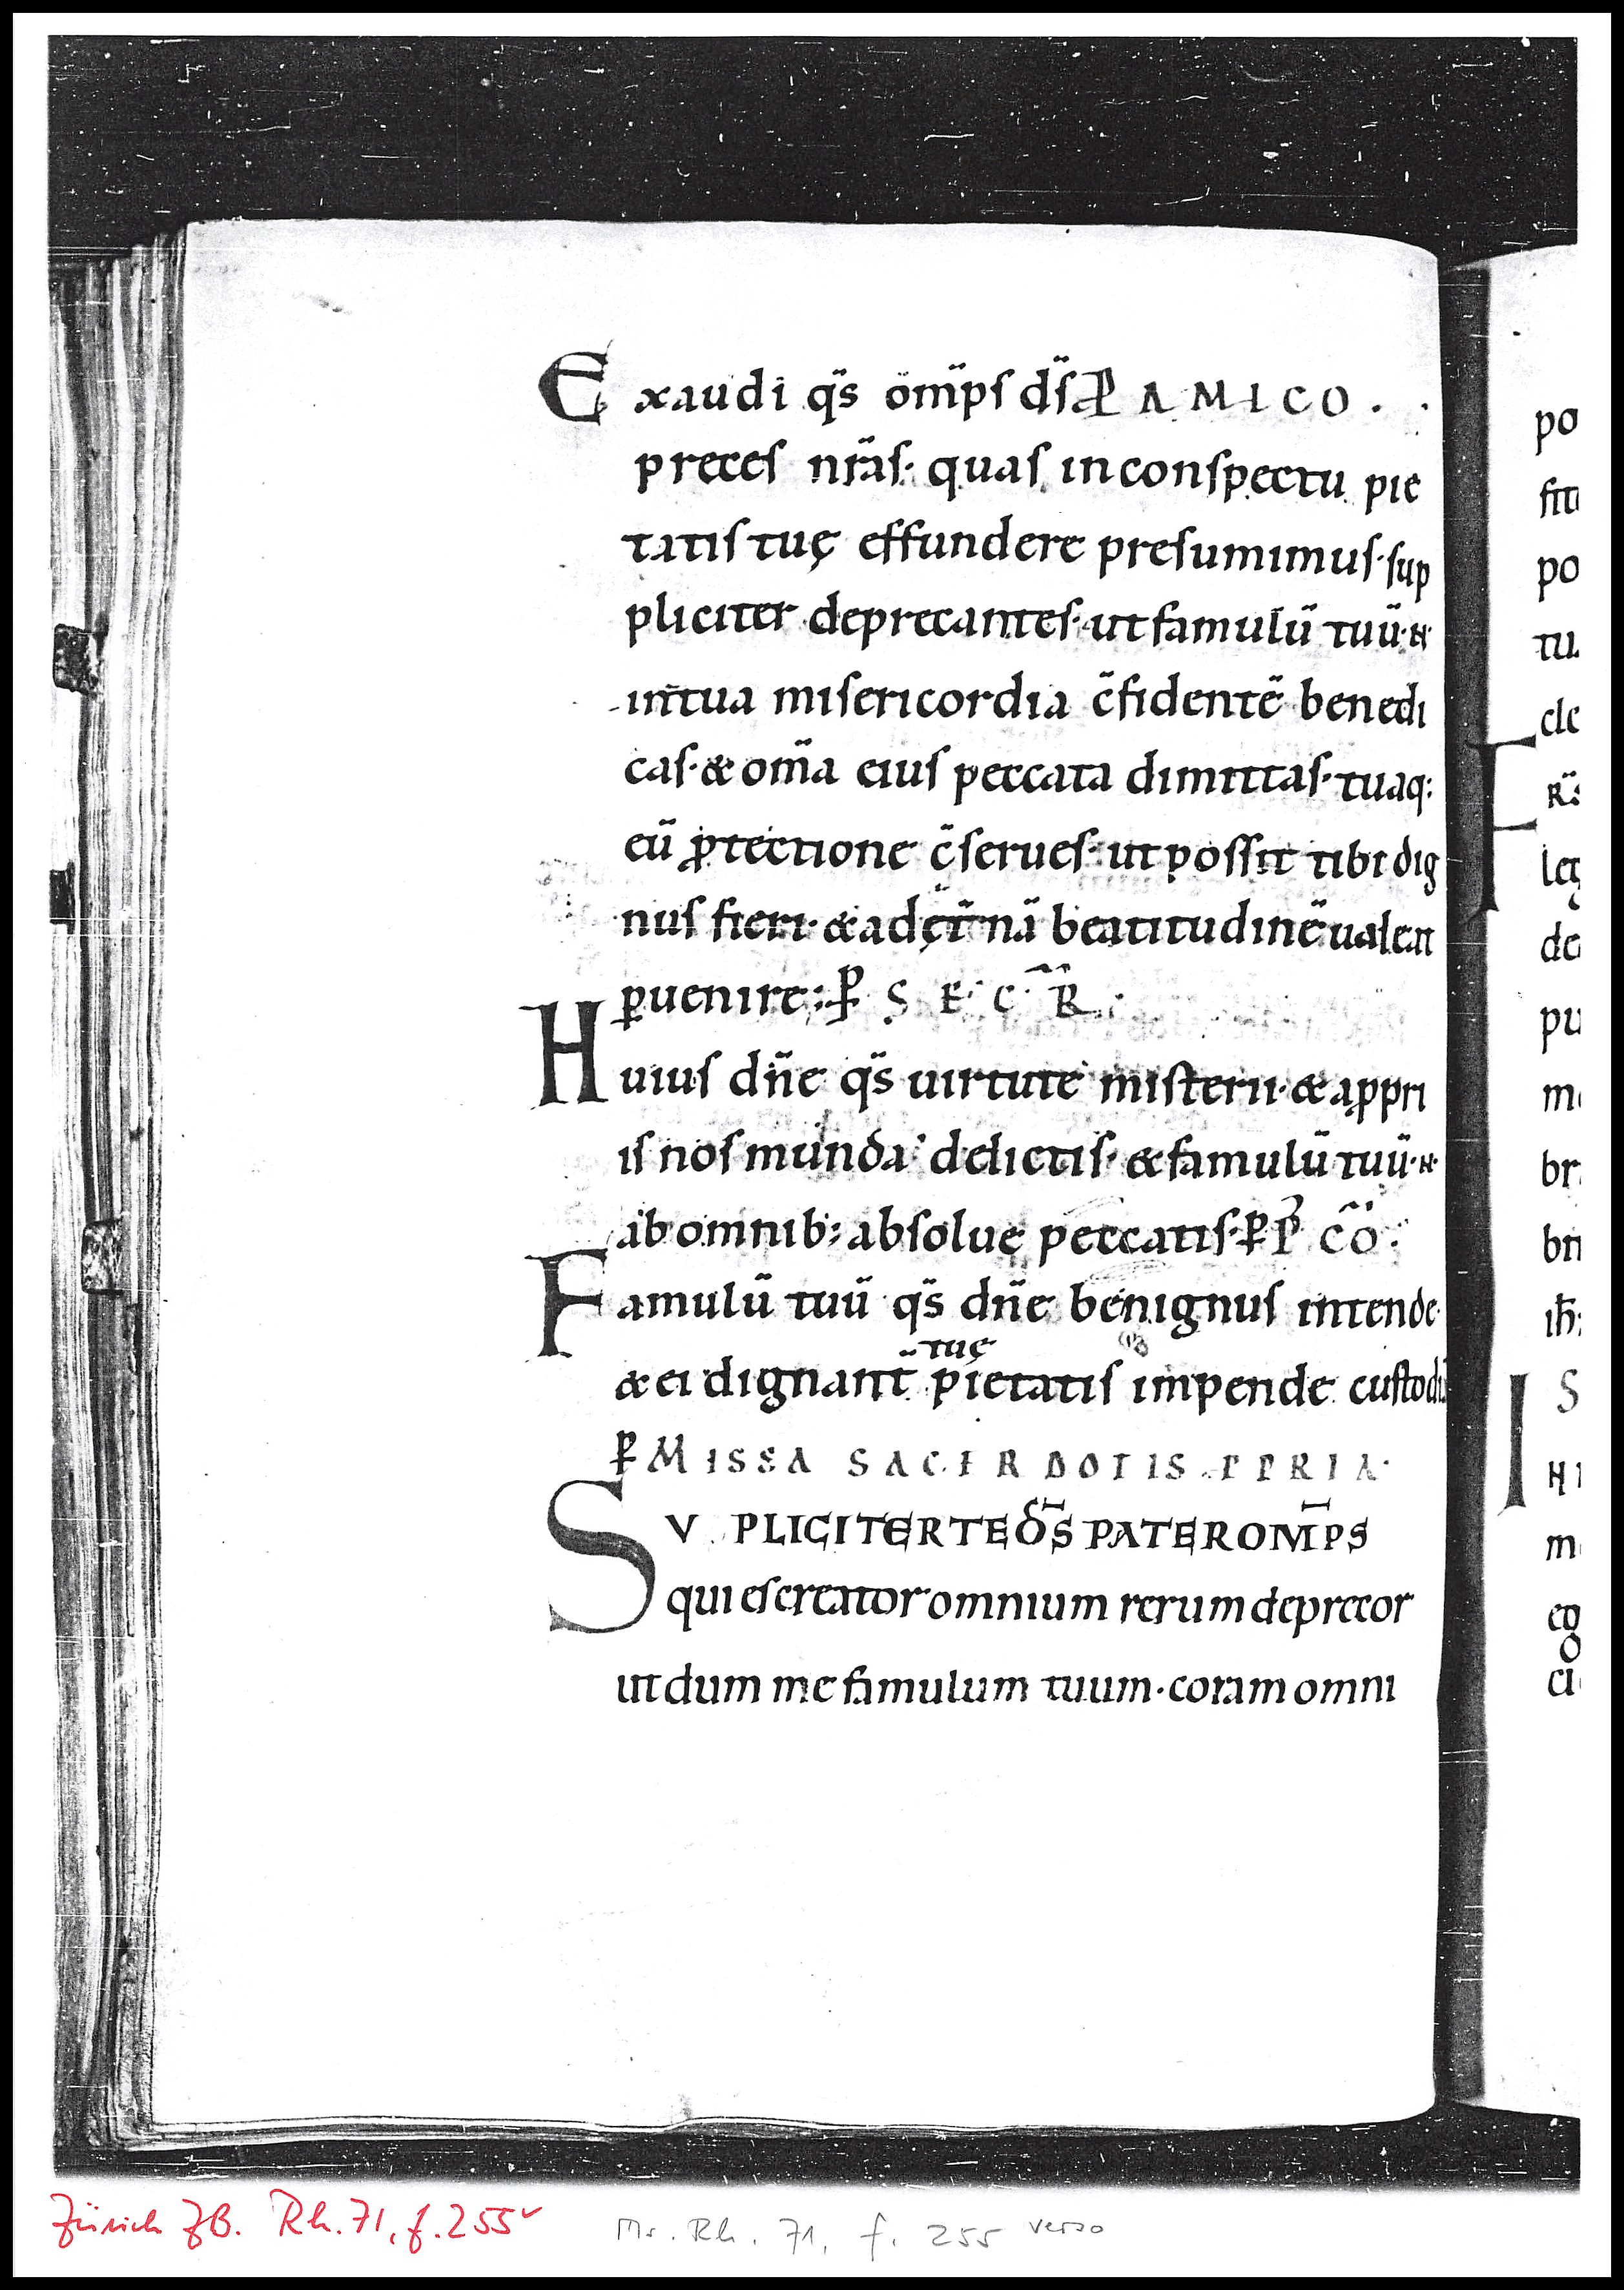 Exaudi q̄s om̄ps ds̄ P AMICO.
preces nr̄as· quas in conspectu pie
tatis tuę effundere presumimus· sup
pliciter deprecantes· ut famulū tuū·N·
in tua misericordia c̄fidentē benedi
cas· & om̄a eius peccata dimittas· tuaq;
eū ꝓtectione c̄serues· ut possit tibi dig
nus fieri· & ad ęt̄nā beatitudinē ualeat
ꝑuenire; ꝑ SECR̄
Huius dn̄e q̄s uirtute misterii· & a ppri
is nos munda delictis· & famulū tuū·N·
ab omnib; absolue peccatis· ꝑ P̄ CŌ
Famulū tuū q̄s dn̄e benignus intende·
tuę
& ei dignant̄ pietatis impende custodiā
ꝑ MISSA SACERDOTIS PPRIA·
SVPLICITER TE D̄S PATER OM̄PS
qui es creator omnium rerum deprecor
ut dum me famulum tuum· coram omni
po
po
de
pu
br
S
Zürich ZB. Rh. 71, f. 255v
Ms. Rh. 71, f. 255 verso